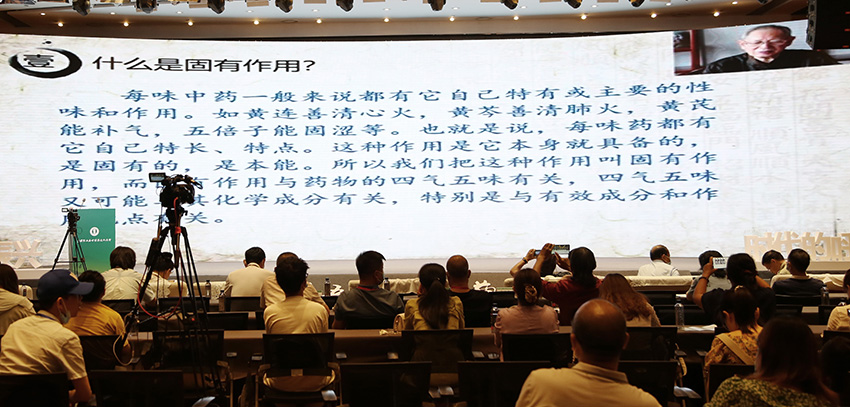 壹 什么是固有作用？
每味中药一般来说都有它自己特有或主要的性
味和作用。如黄连善清心火，黄芩善清肺火，黄芪
能补气，五倍子能固涩等。也就是说，每味药都有
它自己特长、特点。这种作用是它本身就具备的，
是固有的，是本能。所以我们把这种作用叫固有作
用，而 有作用与药物的四气五味有关，四气五味
又可能 其化学成分有关，特别是与有效成分和作
点 关。